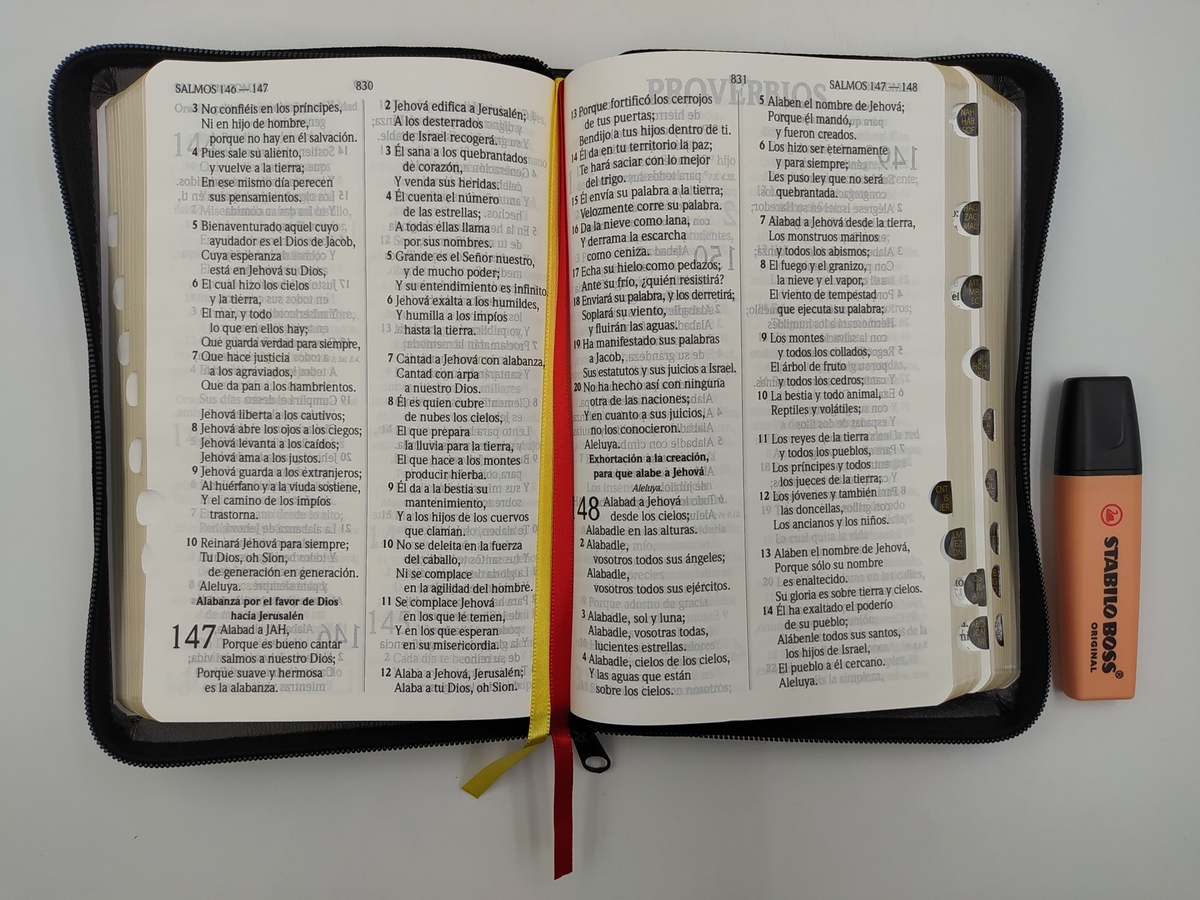 SALMOS 146 — 147
830
3 No confiéis en los príncipes,
Ni en hijo de hombre,
porque no hay en él salvación.
4 Pues sale su aliento,
y vuelve a la tierra;
En ese mismo día perecen
sus pensamientos.
5 Bienaventurado aquel cuyo
ayudador es el Dios de Jacob,
Cuya esperanza
está en Jehová su Dios,
6 El cual hizo los cielos
y la tierra,
El mar, y todo
lo que en ellos hay;
Que guarda verdad para siempre,
7 Que hace justicia
a los agraviados,
Que da pan a los hambrientos.
Jehová liberta a los cautivos;
8 Jehová abre los ojos a los ciegos;
Jehová levanta a los caídos;
Jehová ama a los justos.
9 Jehová guarda a los extranjeros;
Al huérfano y a la viuda sostiene,
Y el camino de los impíos
trastorna.
10 Reinará Jehová para siempre;
Tu Dios, oh Sion,
de generación en generación.
Aleluya.
Alabanza por el favor de Dios
hacia Jerusalén
147 Alabad a JAH,
Porque es bueno cantar
salmos a nuestro Dios;
Porque suave y hermosa
es la alabanza.
2 Jehová edifica a Jerusalén;
A los desterrados
de Israel recogerá.
3 Él sana a los quebrantados
de corazón,
Y venda sus heridas.
4 Él cuenta el número
de las estrellas;
A todas ellas llama
por sus nombres.
5 Grande es el Señor nuestro,
y de mucho poder;
Y su entendimiento es infinito.
6 Jehová exalta a los humildes,
Y humilla a los impíos
hasta la tierra.
7 Cantad a Jehová con alabanza,
Cantad con arpa
a nuestro Dios.
8 Él es quien cubre
de nubes los cielos,
El que prepara
la lluvia para la tierra,
El que hace a los montes
producir hierba.
9 Él da a la bestia su
mantenimiento,
Y a los hijos de los cuervos
que claman.
10 No se deleita en la fuerza
del caballo,
Ni se complace
en la agilidad del hombre.
11 Se complace Jehová
en los que le temen,
Y en los que esperan
en su misericordia.
12 Alaba a Jehová, Jerusalén;
Alaba a tu Dios, oh Sion.
831
SALMOS 147 — 148
13 Porque fortificó los cerrojos
de tus puertas;
Bendijo a tus hijos dentro de ti.
14 Él da en tu territorio la paz;
Te hará saciar con lo mejor
del trigo.
15 Él envía su palabra a la tierra;
Velozmente corre su palabra.
16 Da la nieve como lana,
Y derrama la escarcha
como ceniza.
17 Echa su hielo como pedazos;
Ante su frío, ¿quién resistirá?
18 Enviará su palabra, y los derretirá;
Soplará su viento,
y fluirán las aguas.
19 Ha manifestado sus palabras
a Jacob,
Sus estatutos y sus juicios a Israel.
20 No ha hecho así con ninguna
otra de las naciones;
Y en cuanto a sus juicios,
no los conocieron.
Aleluya.
Exhortación a la creación,
para que alabe a Jehová
Aleluya.
148 Alabad a Jehová
desde los cielos;
Alabadle en las alturas.
2 Alabadle,
vosotros todos sus ángeles;
Alabadle,
vosotros todos sus ejércitos.
3 Alabadle, sol y luna;
Alabadle, vosotras todas,
lucientes estrellas.
4 Alabadle, cielos de los cielos,
Y las aguas que están
sobre los cielos.
5 Alaben el nombre de Jehová;
Porque él mandó,
y fueron creados.
6 Los hizo ser eternamente
y para siempre;
Les puso ley que no será
quebrantada.
7 Alabad a Jehová desde la tierra,
Los monstruos marinos
y todos los abismos;
8 El fuego y el granizo,
la nieve y el vapor,
El viento de tempestad
que ejecuta su palabra;
9 Los montes
y todos los collados,
El árbol de fruto
y todos los cedros;
10 La bestia y todo animal,
Reptiles y volátiles;
11 Los reyes de la tierra
y todos los pueblos,
Los príncipes y todos
los jueces de la tierra;
12 Los jóvenes y también
las doncellas,
Los ancianos y los niños.
13 Alaben el nombre de Jehová,
Porque sólo su nombre
es enaltecido.
Su gloria es sobre tierra y cielos.
14 Él ha exaltado el poderío
de su pueblo;
Alábenle todos sus santos,
los hijos de Israel,
El pueblo a él cercano.
Aleluya.
STABILO BOSS®
ORIGINAL